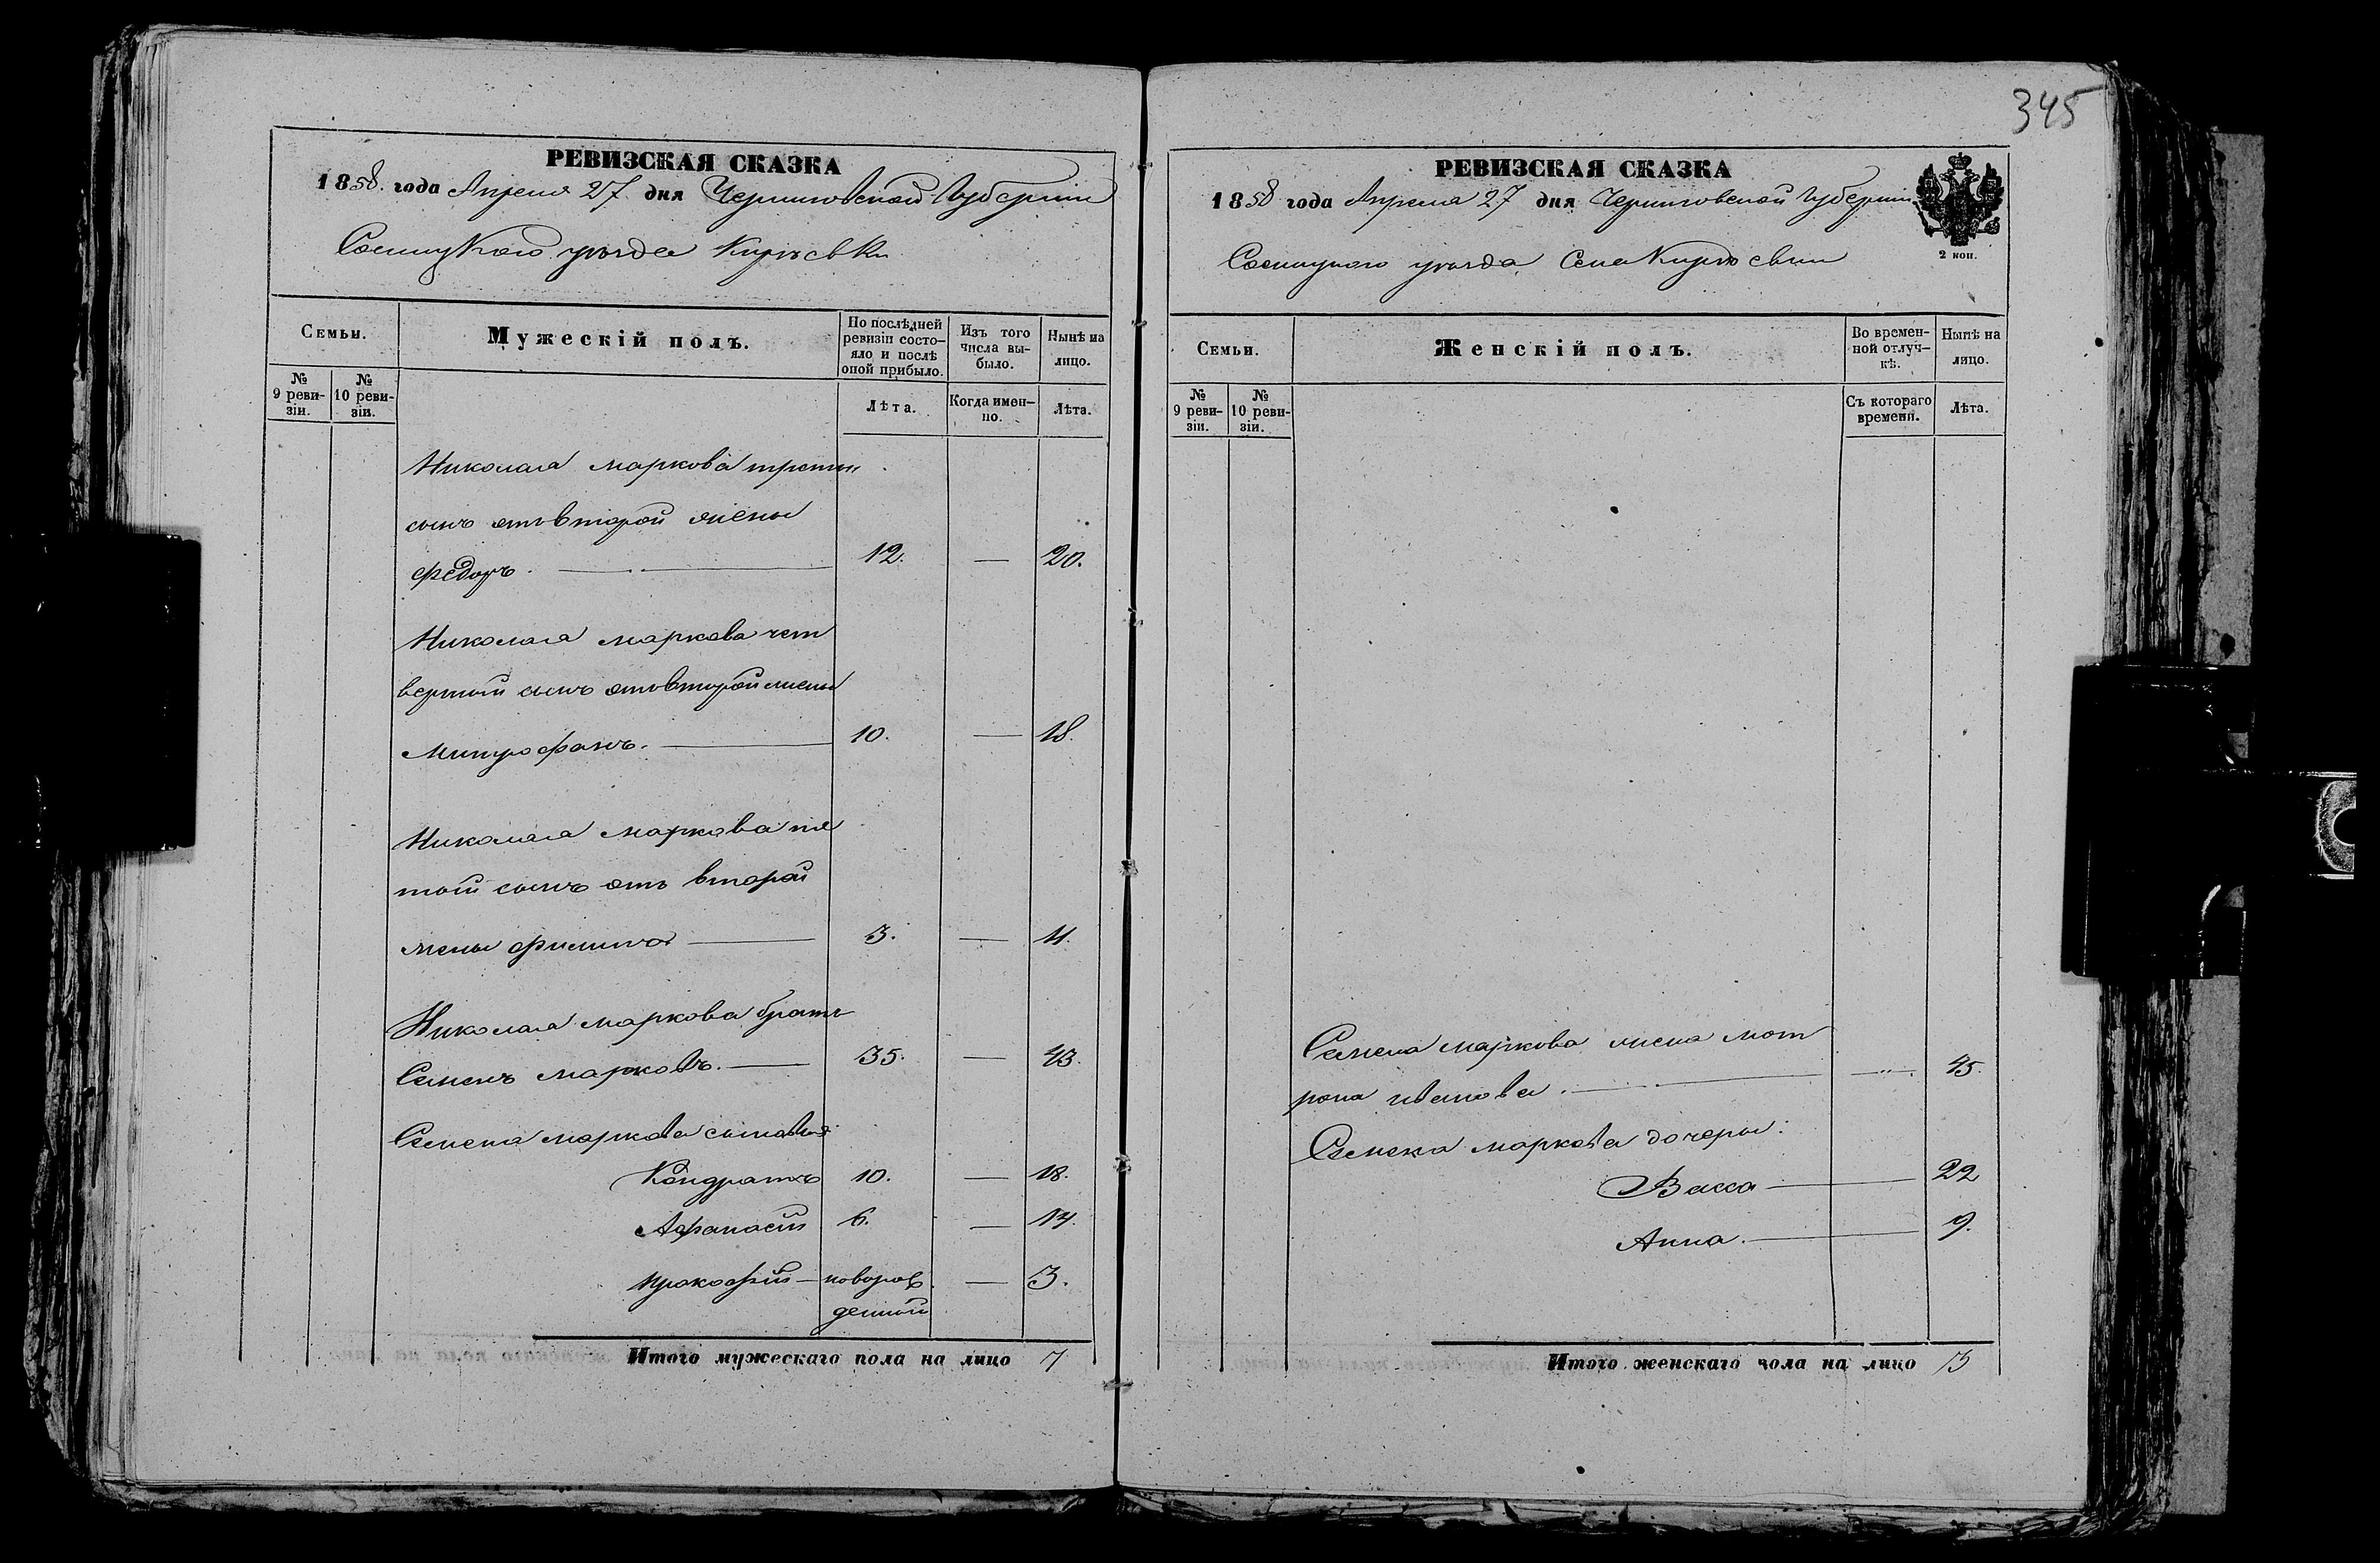 РЕВИЗСКАЯ СКАЗКА
1858. года Апреля 27 дня Черниговской Губерніи
Сосницкого уѣзда Кирѣевки
Семьи.
Мужескій полъ.
По послѣдней ревизіи состояло и послѣ оной прибыло.
Изъ того числа выбыло.
Нынѣ на лицо.
№ 9 ревизіи.
№ 10 ревизіи.
Лѣта.
Когда именно.
Лѣта.
Николая маркова третій
сынъ отъ второй жены
Федоръ. 12. — 20.
Николая маркова чет
вертой сынъ отъ второй жены
Митрофанъ. 10. — 18.
Николая маркова пя
той сынъ отъ второй
жены Филипъ 3. — 11.
Николая маркова братъ
Семенъ марковъ. 35. — 43.
Семена маркова сыновья
Кондратъ 10. — 18.
Афанасій 6. — 14.
Прокофій — новорож — 3.
денной
Итого мужескаго пола на лицо 7
345
РЕВИЗСКАЯ СКАЗКА
1858 года Апреля 27 дня Черниговской Губерніи
Сосницкого уѣзда Села Кирѣевки
2 коп.
Семьи.
Женскій полъ.
Во временной отлучкѣ.
Нынѣ на лицо.
№ 9 ревизіи.
№ 10 ревизіи.
Съ котораго времени.
Лѣта.
Семена маркова жена мот
рона иванова. 45.
Семена маркова дочери:
Васса 22
Анна. 9.
Итого женскаго пола на лицо 3